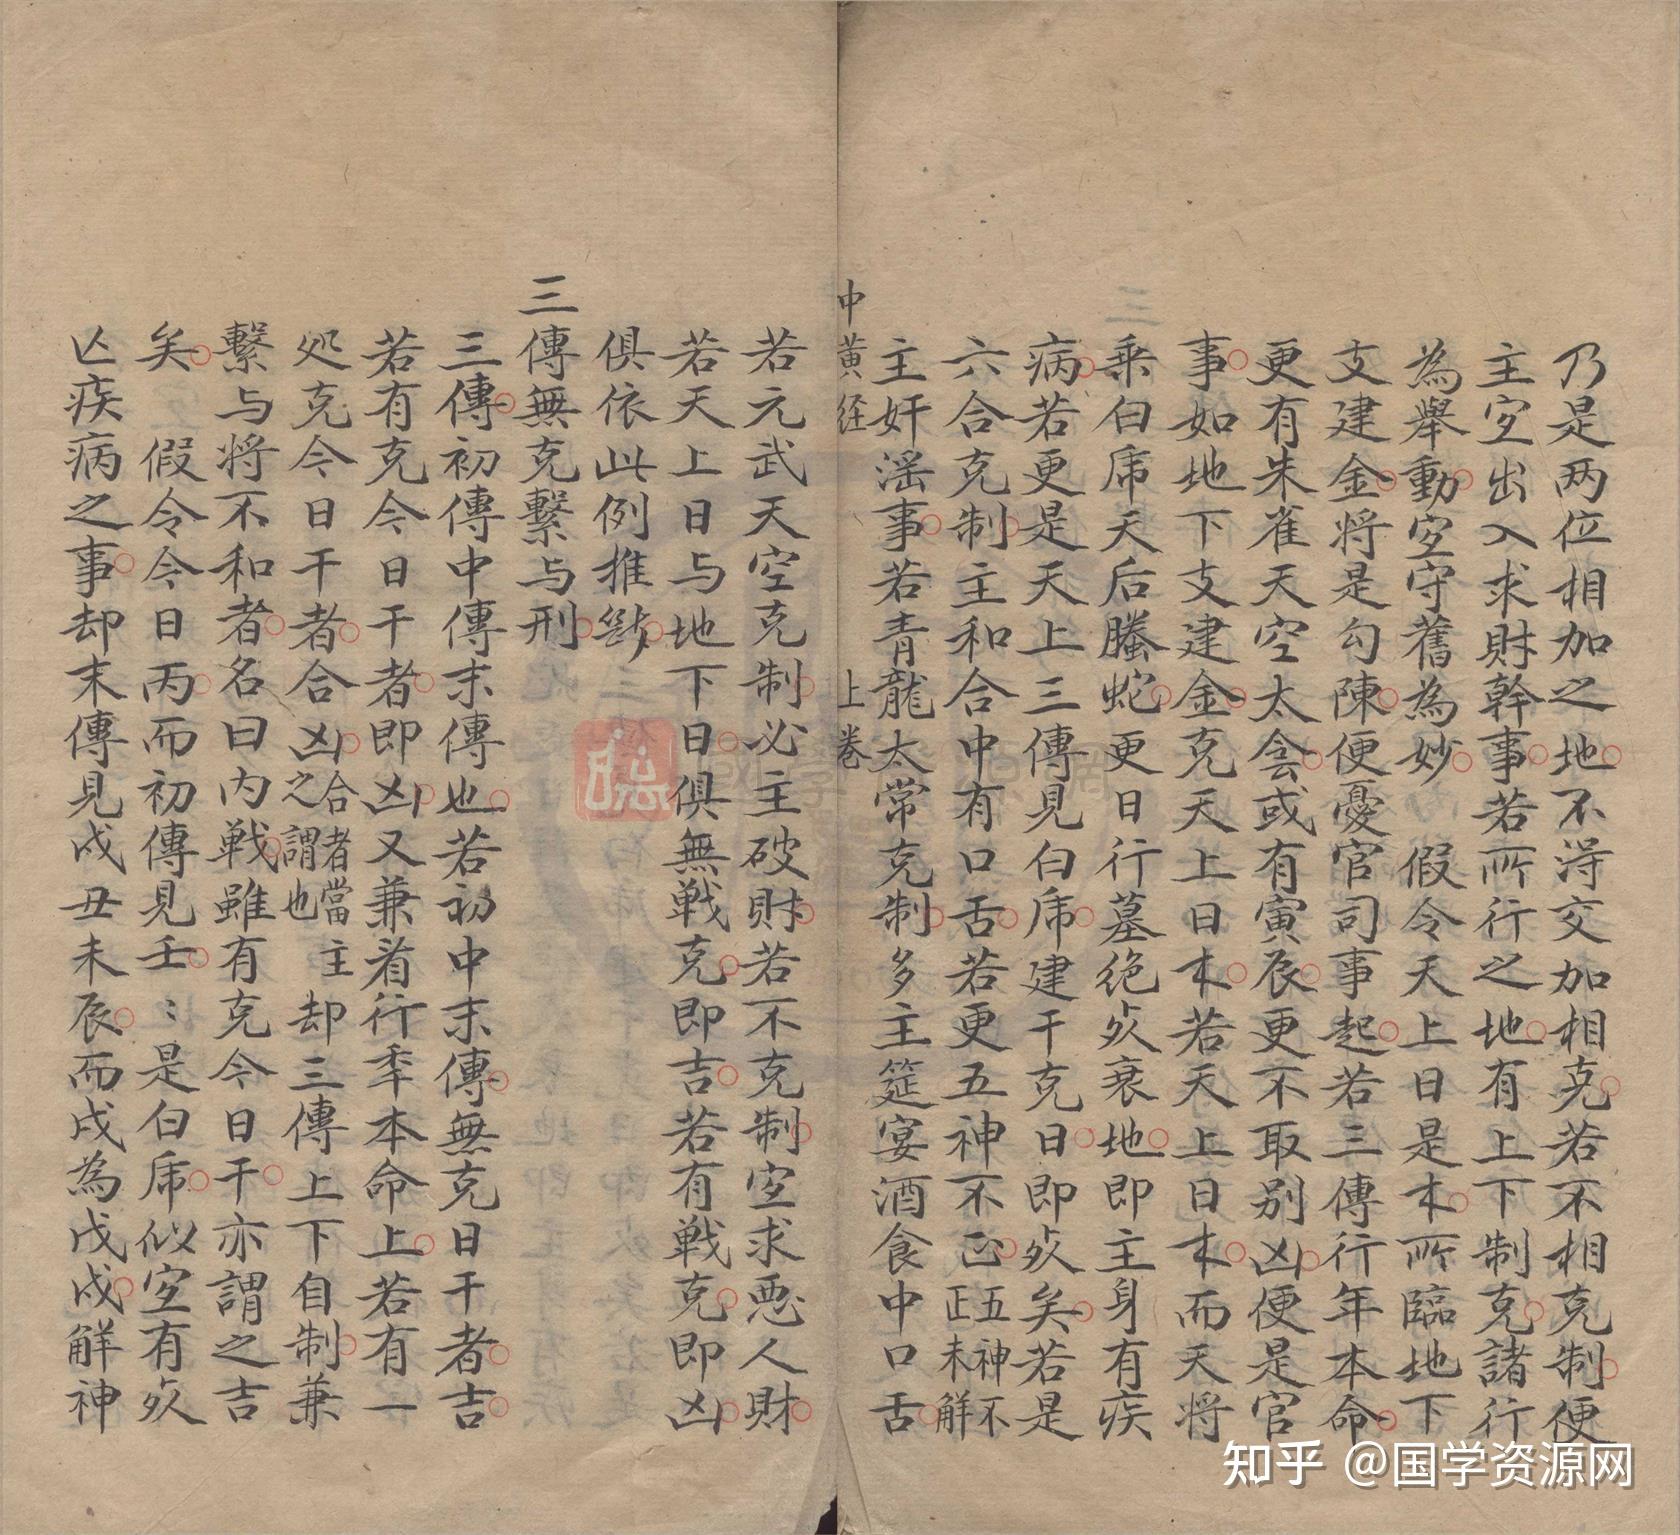 乃是两位相加之地不淂交加相克若不相克制便
主宐出入求財幹事若所行之地有上下制克諸行
為舉動宐守舊為妙　假令天上日是木所臨地下
支建金将是勾陳便憂官司事起若三傳行年本命
更有朱雀天空太侌或有寅辰更不取别凶便是官
事如地下支建金克天上日木若天上日木而天将
乗白虎天后螣蛇更日行墓绝死衰地即主身有疾
病若更是天上三傳見白虎建干克日即死矣若是
六合克制主和合中有口舌若更五神不正五神不正未解
主奸滛事若青龍太常克制多主筵宴酒食中口舌
中黄经　上卷
若元武天空克制必主破財若不克制宐求悪人財
若天上日与地下日俱無戦克即吉若有戦克即凶
俱依此例推
三傳無克繫与刑
三傳初傳中傳末傳也若初中末傳無克日干者吉
若有克今日干者即凶又兼着行年本命上若有一
処克今日干者合凶合者當之謂也主却三傳上下自制兼
繫与将不和者名曰内戦雖有克今日干亦謂之吉
矣　假令今日丙而初傳見壬〻是白虎似宐有死
亾疾病之事却末傳見戌丑未辰而戌為戊戌解神
知乎 @国学资源网